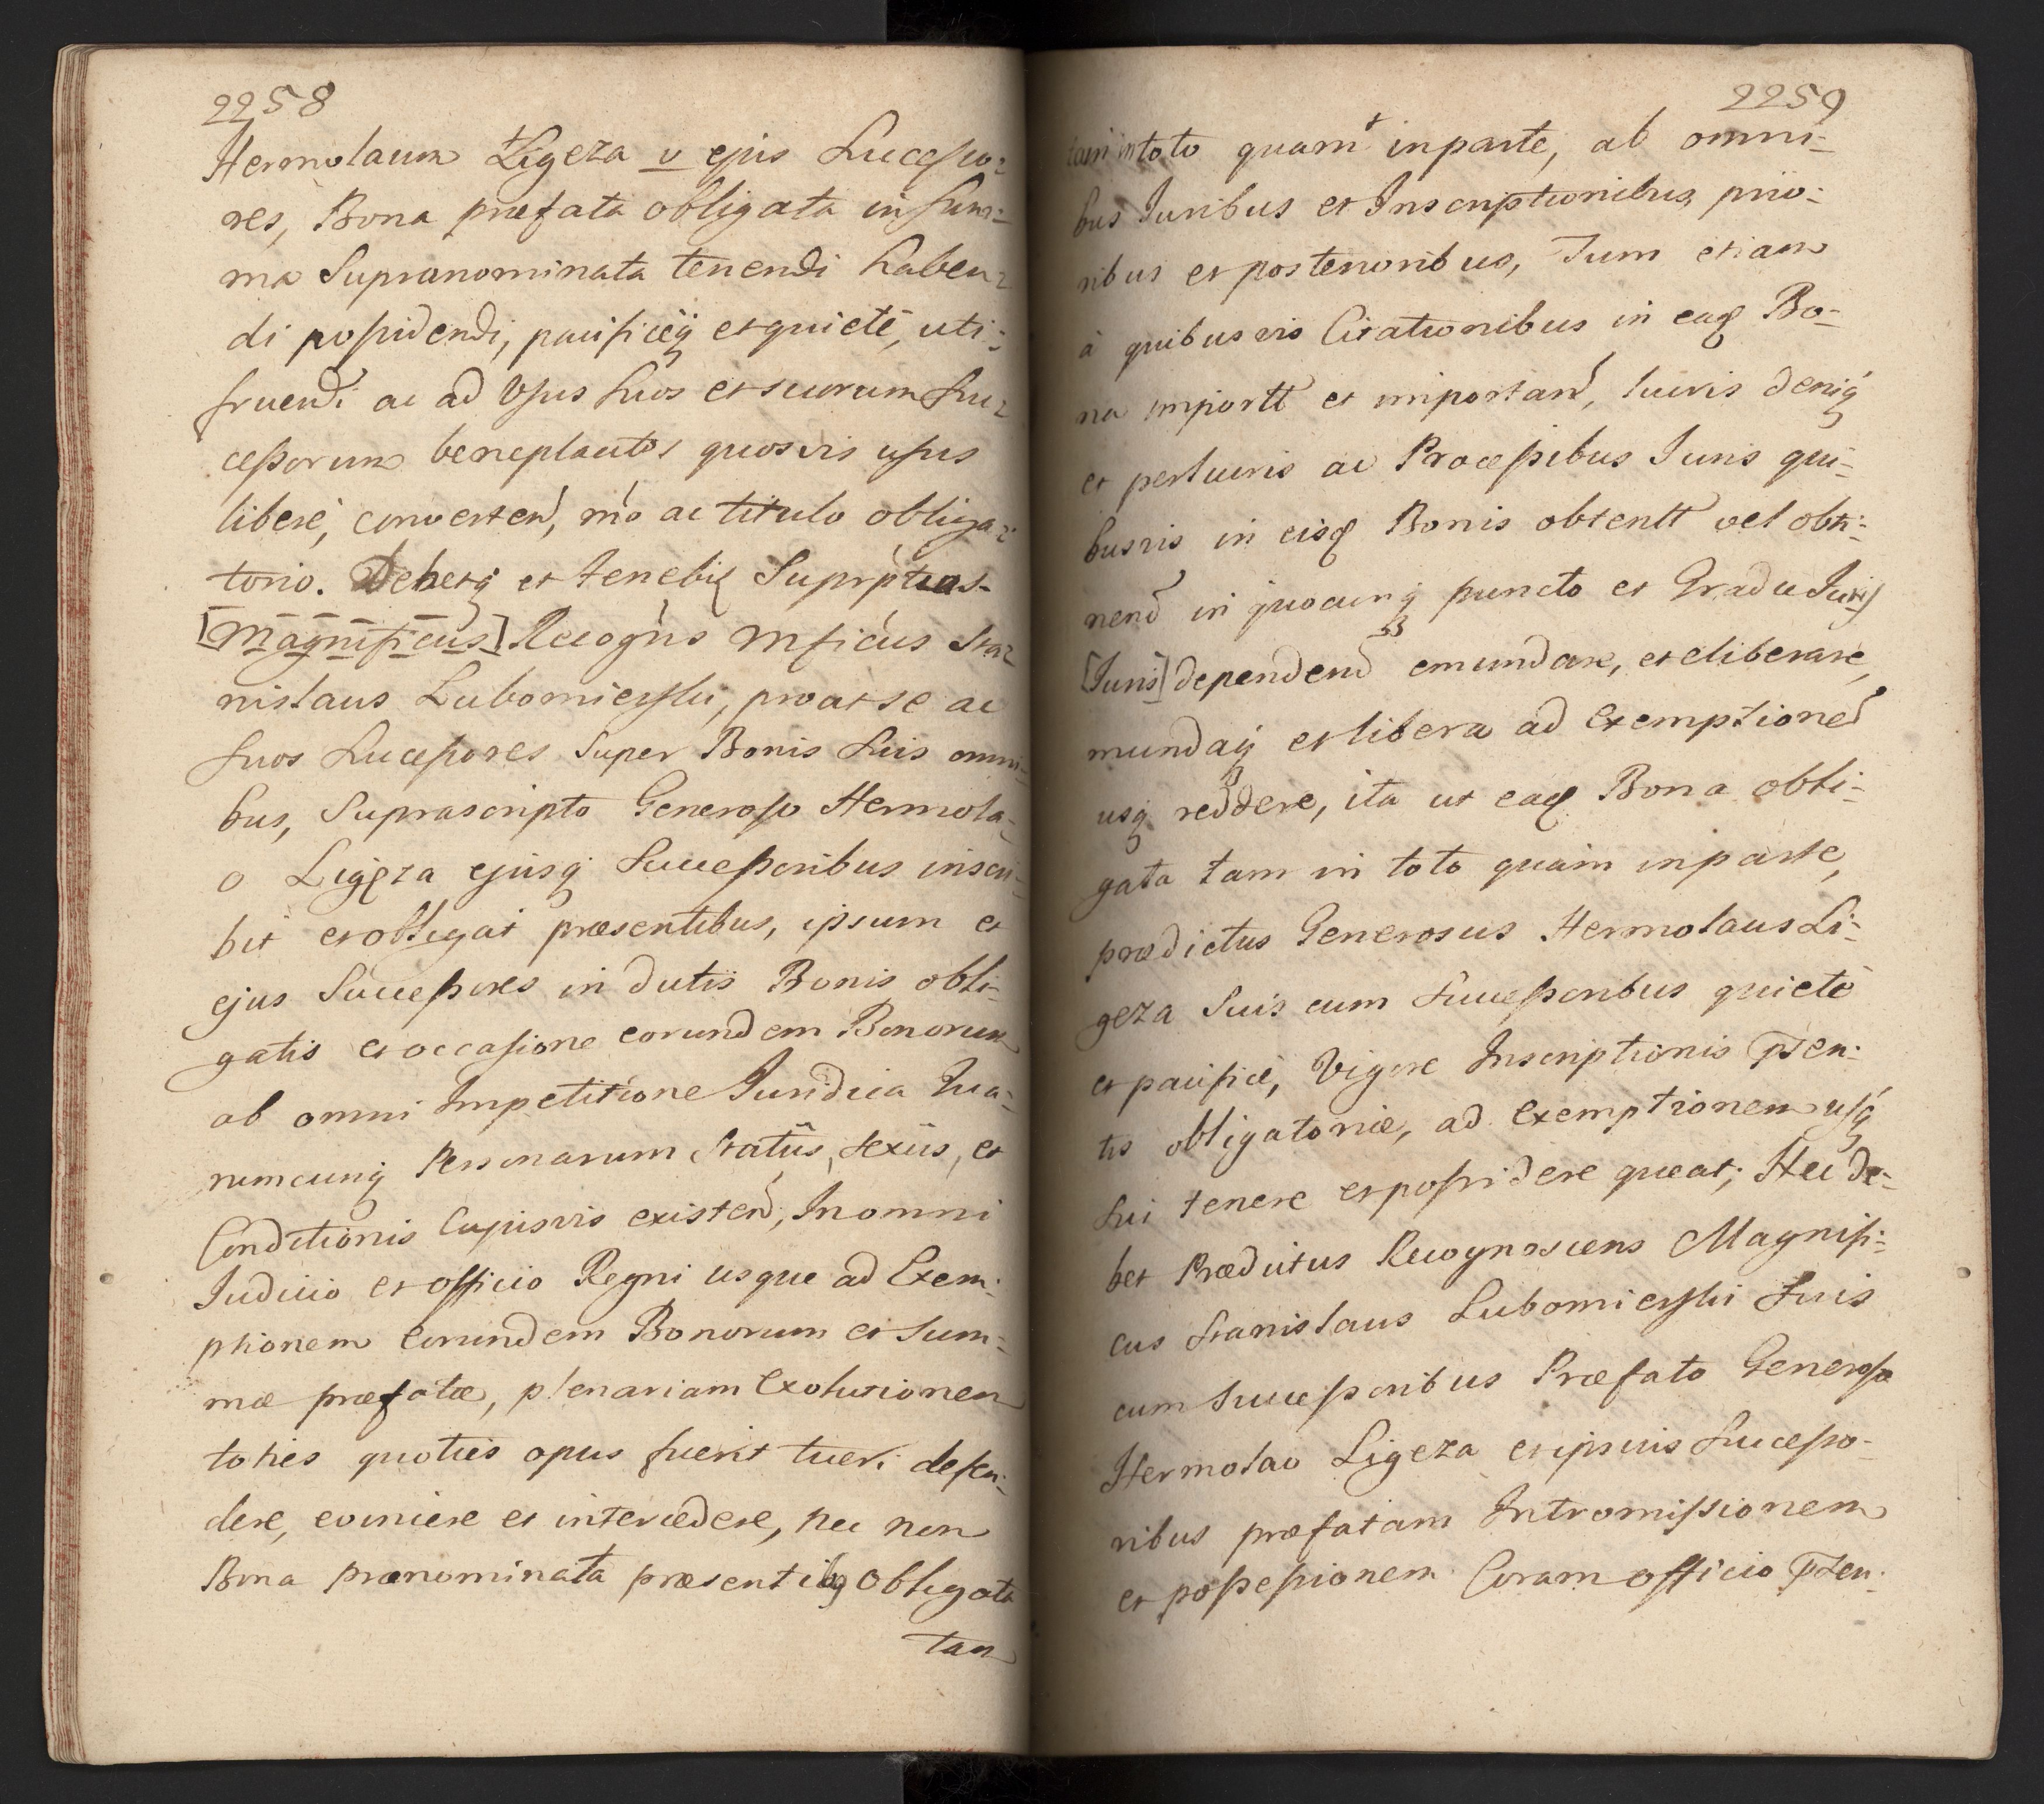 2258
Hermolaum Ligeza v ejus Succeſso:
res, Bona præfata obligata in Sum:
ma Supranominata tenendi haben:
di poſsidendi, pacificeq et quietè, uti:
fruendi ac ad Vſus Suos et suorum Suc:
ceſsorum beneplacitos quosvis uſus
liberè, converten, mô ac titulo obliga:
torio. Debetq et tenebiţ
[Magnificus] Recogns Mficus Sta:
nislaus Lubomierſki, pro at se ac
Suos Succeſsores Super Bonis Suis omni:
bus, Suprascripto Generoſo Hermola:
o Ligęza ejusq Succeſsoribus inscri:
bit et obligat præsentibus, ipsum et
ejus Succeſsores in dictis Bonis obli:
gatis et occaſione eorundem Bonorum
ab omni Impetitione Juridica Qua:
rumcunq Personarum Statûs, Sexûs, et
Conditionis Cujusvis existen, In omni
Judicio et officio Regni usque ad Exem:
ptionem Eorundem Bonorum et Sum:
mæ præfatæ, plenariam Exolutionem
toties quoties opus fuerit tueri defen:
dere, evincere et intercedere, nec non
Bona prænominata præsentibq Obligata
tam
2259
tam in toto quam inparte, ab omni:
bus Juribus et Inscriptionibus, prio:
ribus et posterioribus, Tum etiam
à quibusvis Citationibus in eaq Bo:
na importt et importan, lucris deniq
et perlucris ac Proceſsibus Juris qui:
busvis in eisq Bonis obtentt vel obti:
nend in quocunq puncto et Gradu Juris
[Juris] dependend emundare, et eliberare,
mundaq et libera ad exemptioned
usq reddere, ita ut eaq Bona obli:
gata tam in toto quam inparte,
prædictus Generosus Hermolaus Li:
geza Suis cum Succeſsoribus quietè
et pacificè, Vigore Inscriptionis Psen:
tis obligatoriæ, ad exemptionem uſq
Sui tenere et poſsidere queat; Hec de:
bet Prædictus Recognoscens Magnifi:
cus Stanislaus Lubomierſki Suis
cum Succeſsoribus Præfato Generoſo
Hermolao Ligeza et ipsius Succeſso:
ribus præfatam Intromiſsionem
et poſseſsionem Coram officio Psen: